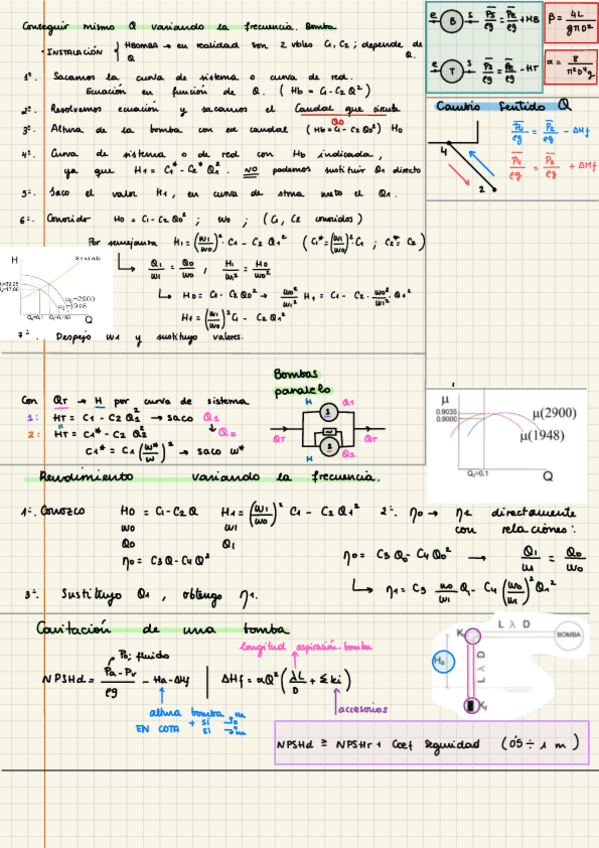 Conseguir mismo Q variando la frecuencia. Bomba
· INSTALACIÓN { HBOMBA → en realidad son 2 vbles C1, C2; depende de Q.
1º. Sacamos la curva de sistema o curva de red.
Ecuación en función de Q. (Hb = C1 - C2 Q²)
2º. Resolvemos ecuación y sacamos el Caudal que circula
Q0
3º. Altura de la bomba con ese caudal (Hb = C1 - C2 Q0²) H0
4º. Curva de sistema o de red con Hb indicada,
ya que H1 = C1* - C2* Q1². NO podemos sustituir Q1 directo
5º. Saco el valor H1, en curva de stma meto el Q1.
6º. Conocido H0 = C1 - C2 Q0² ; w0 ; (C1, C2 conocidos)
Por semejanza H1 = (w1/w0)² · C1 - C2 Q1² (C1* = (w1/w0)² · C1 ; C2* = C2)
↳ Q1/w1 = Q0/w0 , H1/w1² = H0/w0²
↳ H0 = C1 - C2 Q0² → w0²/w1² H1 = C1 - C2 · w0²/w1² · Q1²
H1 = (w1/w0)² C1 - C2 Q1²
7º. Despejo w1 y sustituyo valores.
H
Q
e B s Ps/ρg = Pe/ρg + HB
e T s Ps/ρg = Pe/ρg - HT
β = 4L/gπD²
α = 8/π²D⁴g
Cambio Sentido Q
4
2
+ ΔHf
- ΔHf
Con QT → H por curva de sistema
1: HT = C1 - C2 Q1² → saco Q1
2: HT = C1* - C2 Q2² Q2
C1* = C1 (w*/w)² → saco w*
Bombas
paralelo
H
Q1
1
QT
QT
2
H
Q2
μ
0.9035
0.9000
μ(2900)
μ(1948)
Q0=0.1
Q
Rendimiento variando la frecuencia.
1º. Conozco H0 = C1 - C2 Q H1 = (w1/w0)² C1 - C2 Q1²
w0 w1
Q0 Q1
η0 = C3 Q - C4 Q²
2º. η0 → η1 directamente
con relaciones:
η0 = C3 Q0 - C4 Q0² → Q1/w1 = Q0/w0
↳ η1 = C3 w0/w1 Q1 - C4 (w0/w1)² Q1²
3º. Sustituyo Q1, obtengo η1.
Cavitación de una bomba
Pv; fluido
longitud aspiración-bomba
NPSHd = Pa - Pv/ρg - Ha - ΔHf | ΔHf = αQ² (λL/D + Σki)
altura bomba
EN COTA
accesorios
L λ D
K
BOMBA
Ha
L λ D
NPSHd ≥ NPSHr + Coef Seguridad (0'5 ÷ 1 m)